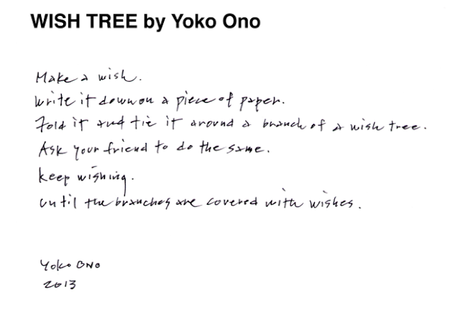 WISH TREE by Yoko Ono
Make a wish.
Write it down on a piece of paper.
Fold it and tie it around a branch of a wish tree.
Ask your friend to do the same.
Keep wishing.
Until the branches are covered with wishes.
Yoko Ono
2013